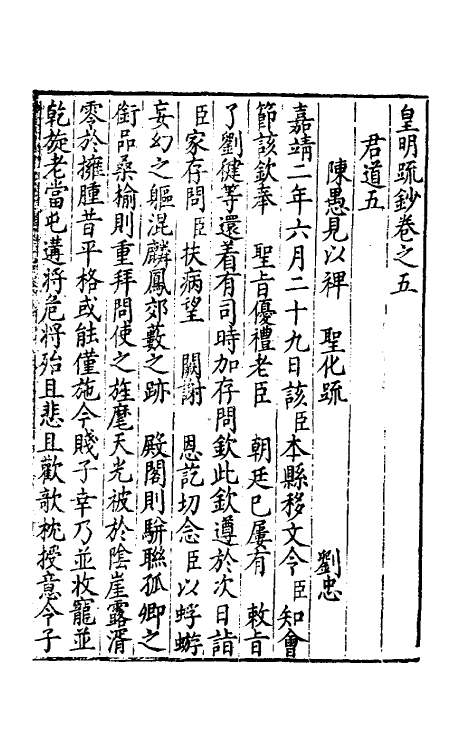 皇明疏鈔卷之五
君道五
陳愚見以裨 聖化疏 劉忠
嘉靖二年六月二十九日該臣本縣移文令臣知會
節該欽奉 聖旨優禮老臣 朝廷已屢有 敕旨
了劉健等還着有司時加存問欽此欽遵於次日詣
臣家存問臣扶病望 闕謝 恩訖切念臣以蜉蝣
妄幻之軀混麟鳳郊藪之跡 殿閣則駢聯孤卿之
銜品桑榆則重拜問使之旌麾天光被於陰崖露湑
零於擁腫昔平格或能僅施今賤子幸乃並收寵並
乾旋老當屯遘將危將殆且悲且歡歌枕授意令子